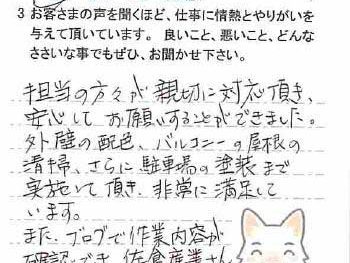 3 お客さまの声を聞くほど、仕事に情熱とやりがいを
与えて頂いています。 良いこと、悪いこと、どんな
ささいな事でもぜひ、お聞かせ下さい。
担当の方々が親切に対応頂き、
安心してお願いすることができました。
外壁の配色、バルコニーの屋根の
清掃、さらに駐車場の塗装まで
実施して頂き、非常に満足して
います。
また、ブログで作業内容が
確認でき、佐倉産業さん